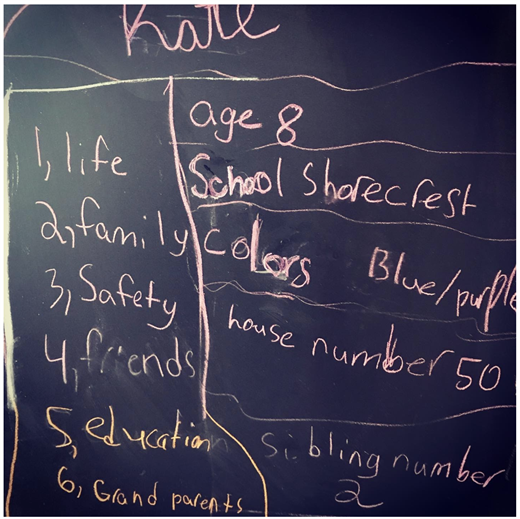 Kate
1, life
2, family
3, Safety
4, friends
5, education
6, Grand parents
age 8
School Shorecrest
colors Blue/purple
house number 50
sibling number
2